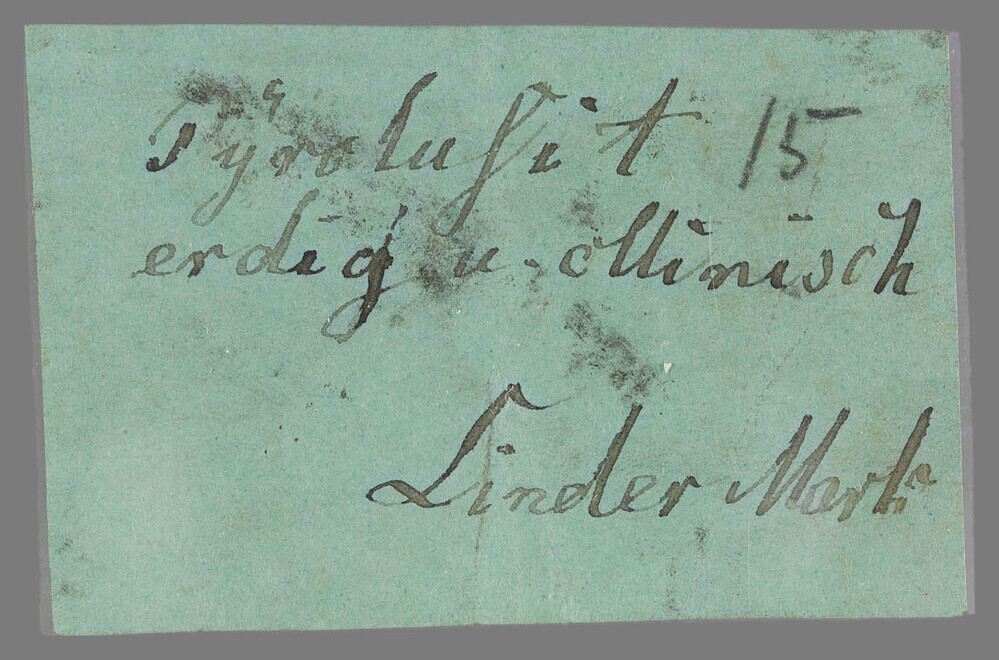 Pyrolusit 15
erdig u. ollinisch
Linder Mark